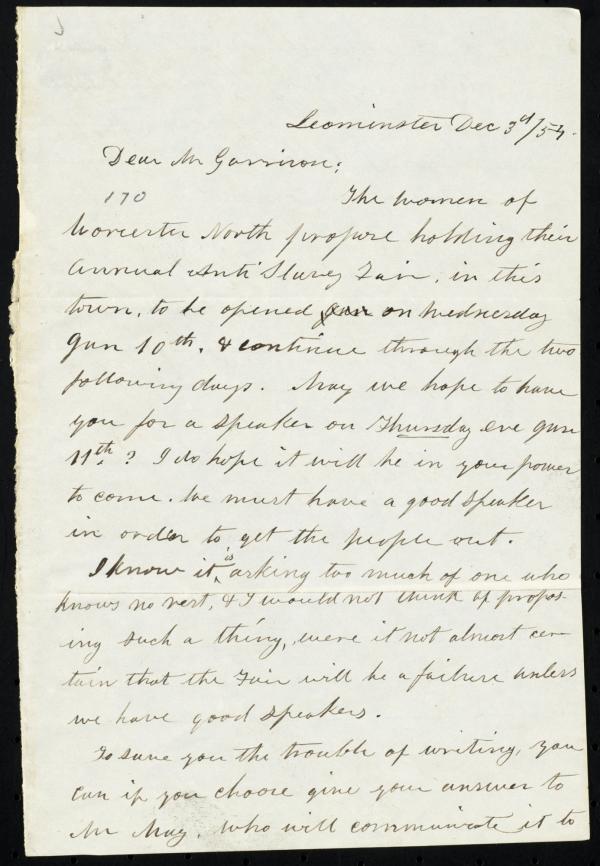 Leominster Dec 3d/54.
Dear Mr Garrison:
170 The women of
Worcester North propose holding their
Annual Anti Slavery Fair, in this
town, to be opened on Wednesday
Jan 10th, & continue through the two
following days. May we hope to have
you for a speaker on Thursday eve Jan
11th? I do hope it will be in your power
to come. We must have a good speaker
in order to get the people out.
I know it is asking too much of one who
knows no rest, & I would not think of propos-
ing such a thing, were it not almost cer-
tain that the Fair will be a failure unless
we have good speakers.
To save you the trouble of writing, you
can if you choose give your answer to
Mr May, who will communicate it to